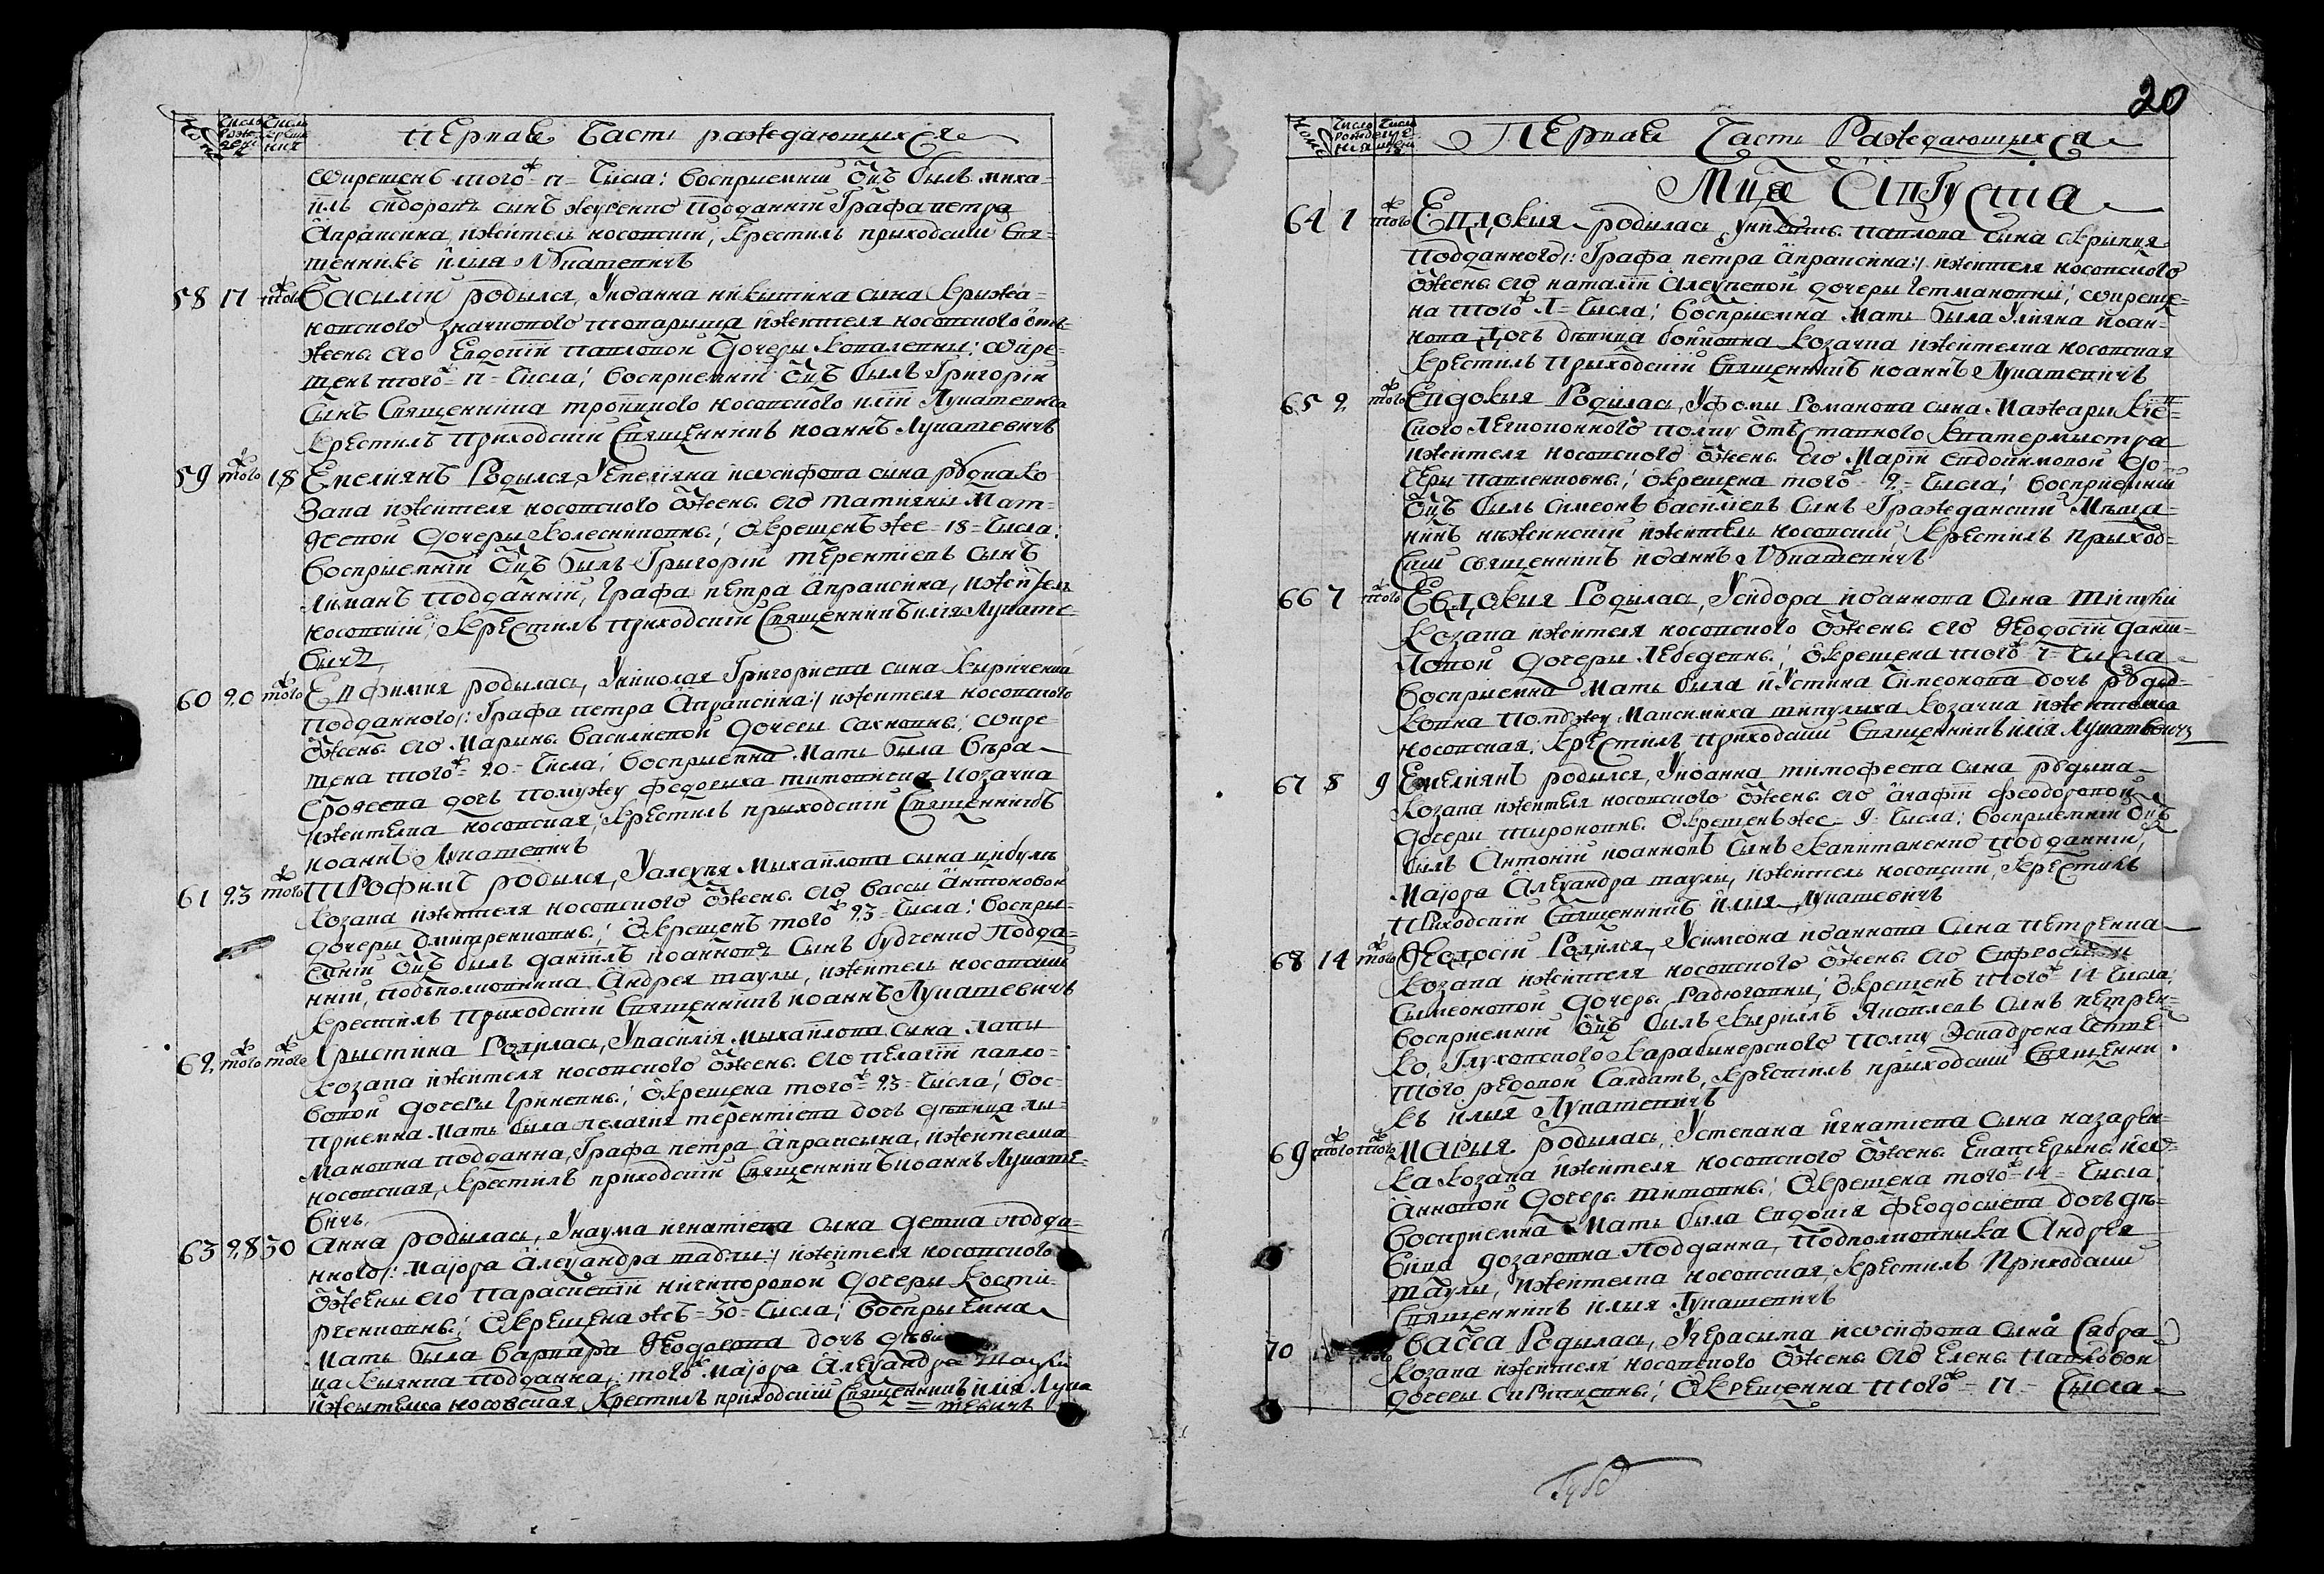 Первая Часть раждающихся
Номе
Число рожде ния
Число креще ния
окрещенъ того ж 17 Числа: восприемній Оцъ былъ миха-
илъ сидоровъ сынъ подданній Графа петра
Апраксина, и житель носовскій, крестилъ приходскій Свя-
щенникъ илия Лукашевичъ
58 17 того ж Василій родился, У иоанна никитина сына крижа-
новского значкового товарыща и жителя носовского отъ
жены его Евдокіи павловой дочеры ковалевны: окре-
щенъ того ж 17 Числа: восприемній Оцъ былъ Григорій
Сынъ Священника тройцкого носовского иліи Лукашевича
крестилъ приходскій Священникъ иоаннъ Лукашевичъ
59 того ж 18 Емелиянъ Родылся, У емелияна иосифова сына рудика ко-
зака и жителя носовского от жены его татияны Мат-
феевой дочеры колесниковны: окрещенъ же 18 Числа:
восприемній Оцъ былъ Григорій терентіевъ сынъ
Лиманъ подданній, Графа петра Апраксина, и житель
носовскій: крестилъ приходскій Священникъ илия Лукаше-
вичъ
60 20 того ж Евфимия родылась, У николая Григориева сына кириченка
подданного /: Графа петра Апраксина :/ и жителя носовского
от жены его Марины Василиевой дочеры сахновны: окре-
щена того ж 20 Числа: восприемна Мать была вѣра
дочъ помужу федориха козачка
и жителка носовская, крестилъ приходскій Священникъ
иоаннъ Лукашевичъ
61 23 того ж Трофимъ родылся, У алеѯѣя Михайлова сына цибулѣ
козака и жителя носовского от жены его вассы Антоновой
дочеры дмитренковны: окрещенъ того ж 23 Числа: воспри-
емній Оцъ былъ даніилъ иоанновъ сынъ будченко Подда-
нній, подполковника Андрея таулы, и житель носовскій
крестилъ приходскій Священникъ иоаннъ Лукашевичъ
62 того ж того ж Христина Родилась, У василія Михайлова сына Лапы
козака и жителя носовского от жены его пелагіи павло-
вовой дочеры гриневны: окрещена того ж 23 Числа: вос-
приемна Мать была пелагия терентіева дочъ дѣвица Ли-
мановна подданна, Графа петра Апраксына, и жителка
носовская, крестилъ приходскій Священникъ иоаннъ Лукаше-
вичъ
63 28 30 Анна родылась, У наума игнатіева сына подда-
нного /: Маіора Алеѯандра таулы :/ и жителя носовского
от жены его параскевіи никифоровой дочеры кости-
рченковны: окрещена же 30 Числа: восприемна
Мать была варвара Феодорова дочъ дѣви
ца киянка подданна, того ж Маіора Алеѯандра таулы
и жителка носовская крестилъ приходскій Священникъ илія Лука
шевичъ
20
Номе
Число рожде ния
Число креще ния
Первая Часть Раждающихся
Мца Августа
64 1 того ж Евдокия родылась, У никиты павлова сына скрипця
подданного /: Графа петра Апраксина :/ и жителя носовского
от жены его наталіи Алеѯѣевой дочеры гетмановны: окреще-
на того ж 1 Числа: восприемна Мать была Улияна иоан-
нова дочъ дѣвица бойковна козачка и жителка носовская
крестилъ приходскій Священникъ иоаннъ Лукашевичъ
65 2 того ж Евдокия Родилась, У фомы Романова сына Мажары кіе-
вского Легионного полку отъставного квартермистра
и жителя носовского от жены его Марии евдокимовой до-
черы павленковны: окрещена того ж 2 Числа: восприемній
Оцъ былъ Симеонъ василіевъ сынъ Гражданскій Мѣща-
нинъ нѣжинскій и житель носовскій: крестилъ приход-
скій священникъ иоаннъ Лукашевичъ
66 7 того ж Евдокия Родилась, У сидора иоаннова сына
козака и жителя носовского от жены его Феодосіи дани-
ловой дочеры Лебедевны: окрещена того ж 7 Числа
восприемна Мать была иустина Симеонова дочъ рудь-
ковна помужу Максимиха козачка и жителка
носовская: крестилъ приходскій Священникъ илія Лукашевичъ
67 8 9 Емелиянъ родылся, У иоанна тимофеева сына рудика
козака и жителя носовского от жены его Агафіи феодоровой
дочеры тироновны окрещенъ же 9 Числа: восприемній Оцъ
былъ Антоній иоанновъ сынъ капитаненко подданній,
Маіора Алеѯандра таулы, и житель носовскій, крестилъ
приходскій Священникъ илия Лукашевичъ
68 14 того ж Феодосій Родился, У симеона иоаннова сына петренка
козака и жителя носовского от жены его
Сымеоновой дочеры Радюговны: окрещенъ того ж 14 Числа:
восприемній Оцъ былъ кириллъ Яковлевъ сынъ петрен-
ко, Глуховского карабинерского полку Эскадрона Четве-
того редовой Салдатъ, крестилъ приходскій Священни
къ илия Лукашевичъ
69 того ж того ж Мария родылась, У степана игнатіева сына назарен-
ка козака и жителя носовского от жены Екатерины
Анновой дочеры титовны: окрещена того ж 14 Числа:
восприемна Мать была евдокия Феодосиева дочъ дѣ-
вица подданна, подполковника Андрея
таулы, и жителка носовская, крестилъ приходскій
Священникъ илия Лукашевичъ
70 Васса Родылась, У герасима иосифова сына Сябра
козака и жителя носовского от жены его елены павловой
дочеры: окрещенна того ж 17 Числа